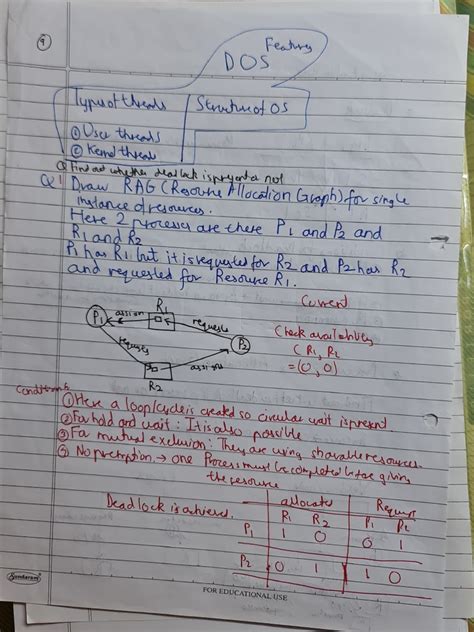 9
Features
DOS
Types of threads
Structure of OS
① User threads
② Kernel threads
Find out whether deadlock is present or not
Q1 Draw RAG (Resource Allocation Graph) for single
instance of resources.
Here 2 processes are there P1 and P2 and
R1 and R2
P1 has R1 but it is requested for R2 and P2 has R2
and requested for Resource R1.
Current
R1
assign
requests
P1
P2
Check availability
(R1, R2
=(0, 0)
assign
R2
Conditions
① Here a loop/cycle is created so circular wait is present.
② For hold and wait: It is also possible
③ For mutual exclusion: They are using sharable resources.
No premption → one Process must be completed before giving
the resource
Deadlock is achieved.
allocated
Request
R1 R2
P1 1 0 0 1
P2 0 1 1 0
Sundaram
FOR EDUCATIONAL USE